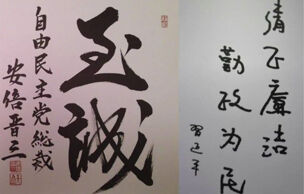 至誠
自由民主党総裁
安倍晋三
清正廉洁
勤政为民
习近平